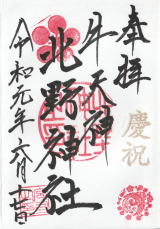 奉拝
慶祝
牛天神
北野神社
令和元年六月十一日